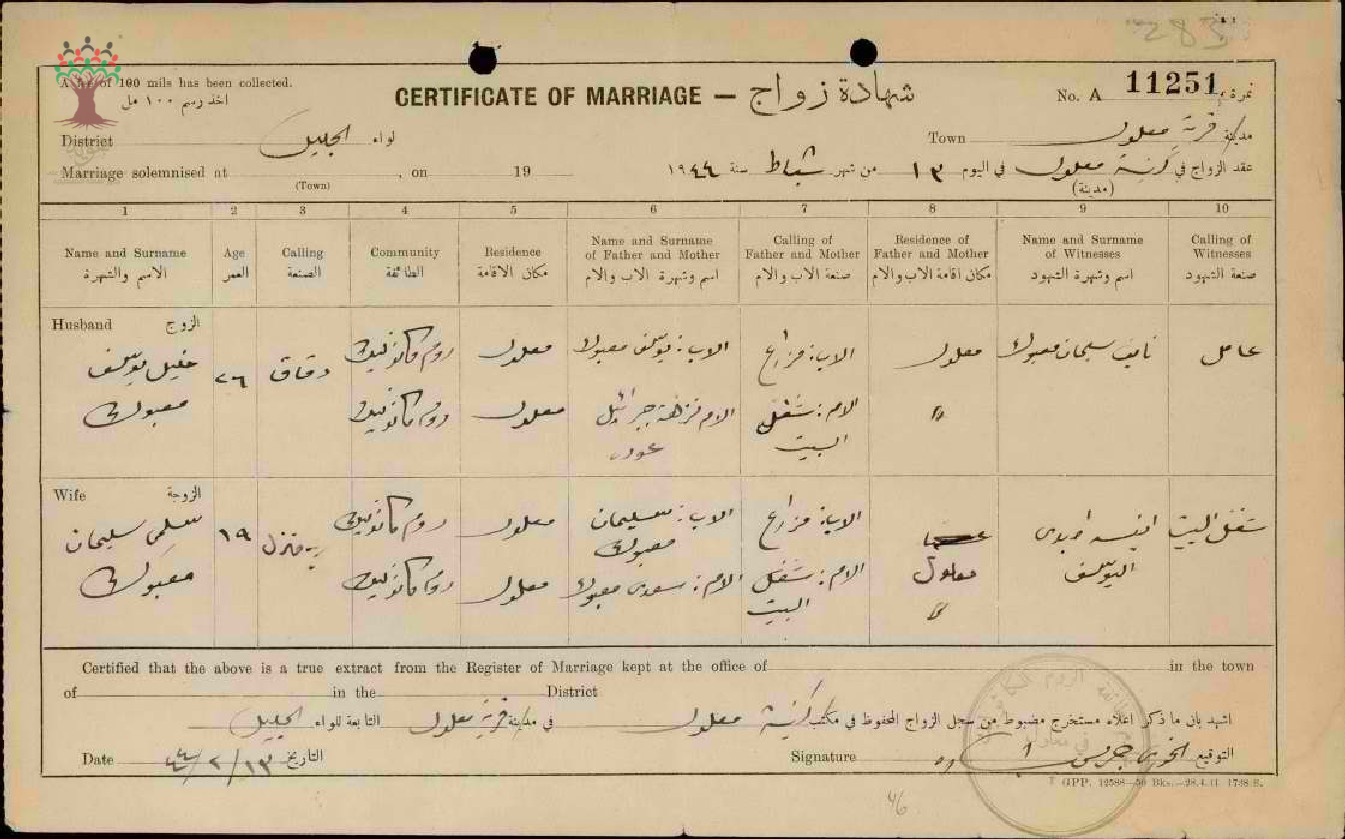 283
A fee of 100 mils has been collected.
اخذ رسم ١٠٠ مل
CERTIFICATE OF MARRIAGE — شهادة زواج
No. A 11251 نمرة
District الجليل لواء
Town قرية معلول مدينة
Marriage solemnised at , on 19
(Town)
عقد الزواج في كنيسة معلول في اليوم ١٣ من شهر شباط سنة ١٩٤٤
(مدينة)
1 2 3 4 5 6 7 8 9 10
Name and Surname الاسم والشهرة
Age العمر
Calling الصنعة
Community الطائفة
Residence مكان الاقامة
Name and Surname of Father and Mother اسم وشهرة الاب والام
Calling of Father and Mother صنعة الاب والام
Residence of Father and Mother مكان اقامة الاب والام
Name and Surname of Witnesses اسم وشهرة الشهود
Calling of Witnesses صنعة الشهود
Husband الزوج
خليل يوسف معبوك
٢٦
دقاق
روم كاثوليك
روم كاثوليك
معلول
معلول
الاب: يوسف معبوك
الام نزهة جبرائيل
الاب: مزارع
الام: شغل البيت
معلول
"
نايف سليمان معبوك
عامل
Wife الزوجة
سلمى سليمان معبوك
١٩
روم كاثوليك
روم كاثوليك
معلول
معلول
الاب: سليمان معبوك
الام: سعدى معبوك
الاب: مزارع
الام: شغل البيت
معلول
"
اليوسف
شغل البيت
Certified that the above is a true extract from the Register of Marriage kept at the office of in the town
of in the District
اشهد باني ما ذكر اعلاه مستخرج مضبوط من سجل الزواج المحفوظ في مكتب كنيسة معلول في مدينة قرية معلول التابعة للواء الجليل
Date ١٣/٢/٤٤ التاريخ
Signature الخوري جريس التوقيع
GPP. 12588—50 Bks.—28.4.41 1738 S.
46